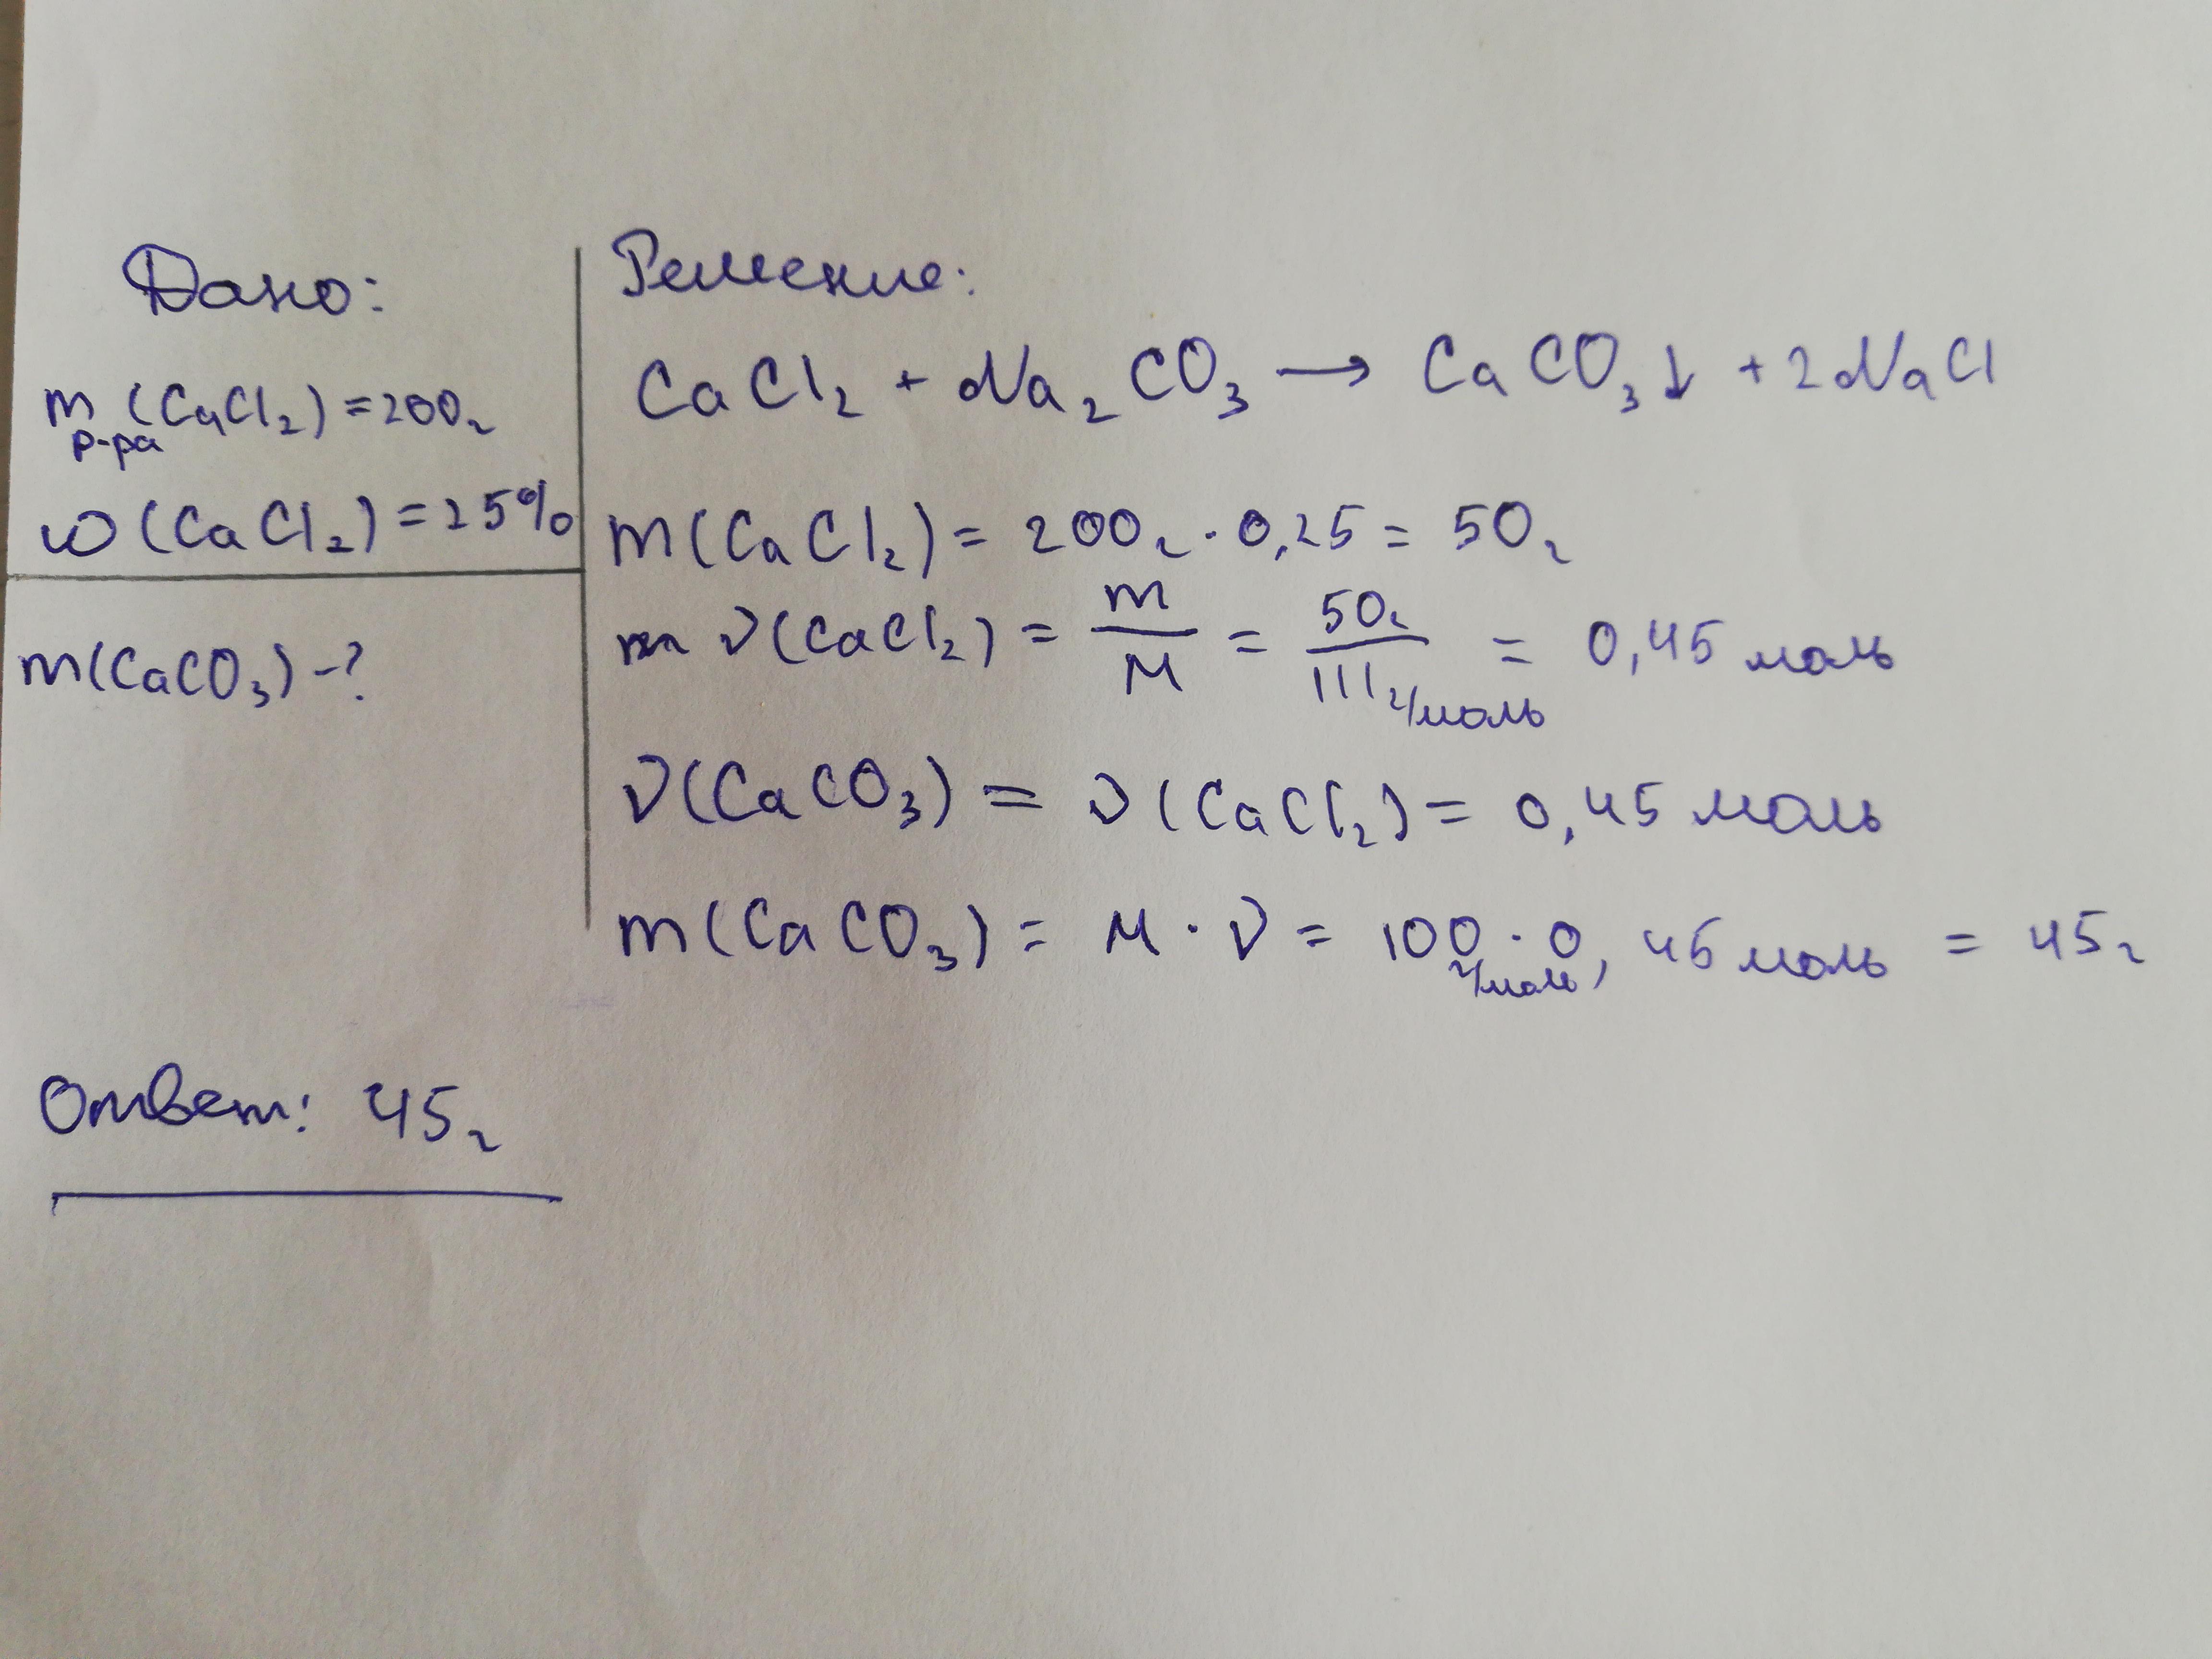 Дано:
m р-ра (CaCl₂) = 200г
ω (CaCl₂) = 25%
m(CaCO₃) -?
Решение:
CaCl₂ + Na₂CO₃ → CaCO₃↓ + 2NaCl
m(CaCl₂) = 200г · 0,25 = 50г
ν(CaCl₂) = m/M = 50г/111г/моль = 0,45 моль
ν(CaCO₃) = ν(CaCl₂) = 0,45 моль
m(CaCO₃) = M · ν = 100г/моль · 0,45 моль = 45г
Ответ: 45г